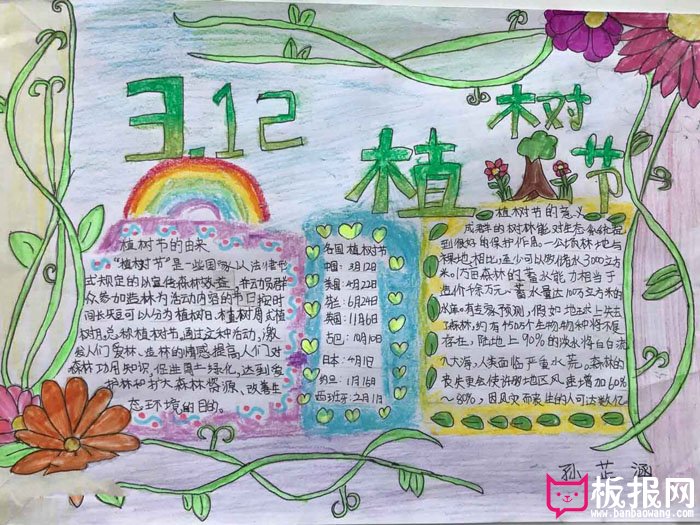 3.12
植树节
植树节的由来
"植树节"是一些国家以法律形
式规定的以宣传森林效益,并动员群
众参加造林为活动内容的节日.按时
间长短可以分为植树日.植树周或植
树月,总称植树节.通过这种活动,激
发人们爱林、造林的情感.提高人们对
森林功用知识,促进国土绿化,达到爱
护林和扩大森林资源、改善生
态环境的目的。
各国植树节
中国:3月12日
美国:4月22日
6月24日
11月6日
古巴:10月10日
日本:4月1日
约旦:1月16日
西班牙:2月1日
植树节的意义
成群的树林能对生态系统起
到很好的保护作用.一公顷林地与
裸地相比,至少可以多储水3000立方
米.1万亩森林的蓄水能力相当于
蓄水量达100万立方米的
水库.有专家预测,假如地球上失去
了森林,约有450万个生物物种将不复
存在,陆地上90%的淡水将白白流
入大海,人类面临严重水荒。森林的
丧失更会使许多地区风速增加60%
~80%,因风灾而丧生的人可达数亿
孙芷涵
板报网
www.banbaowang.com